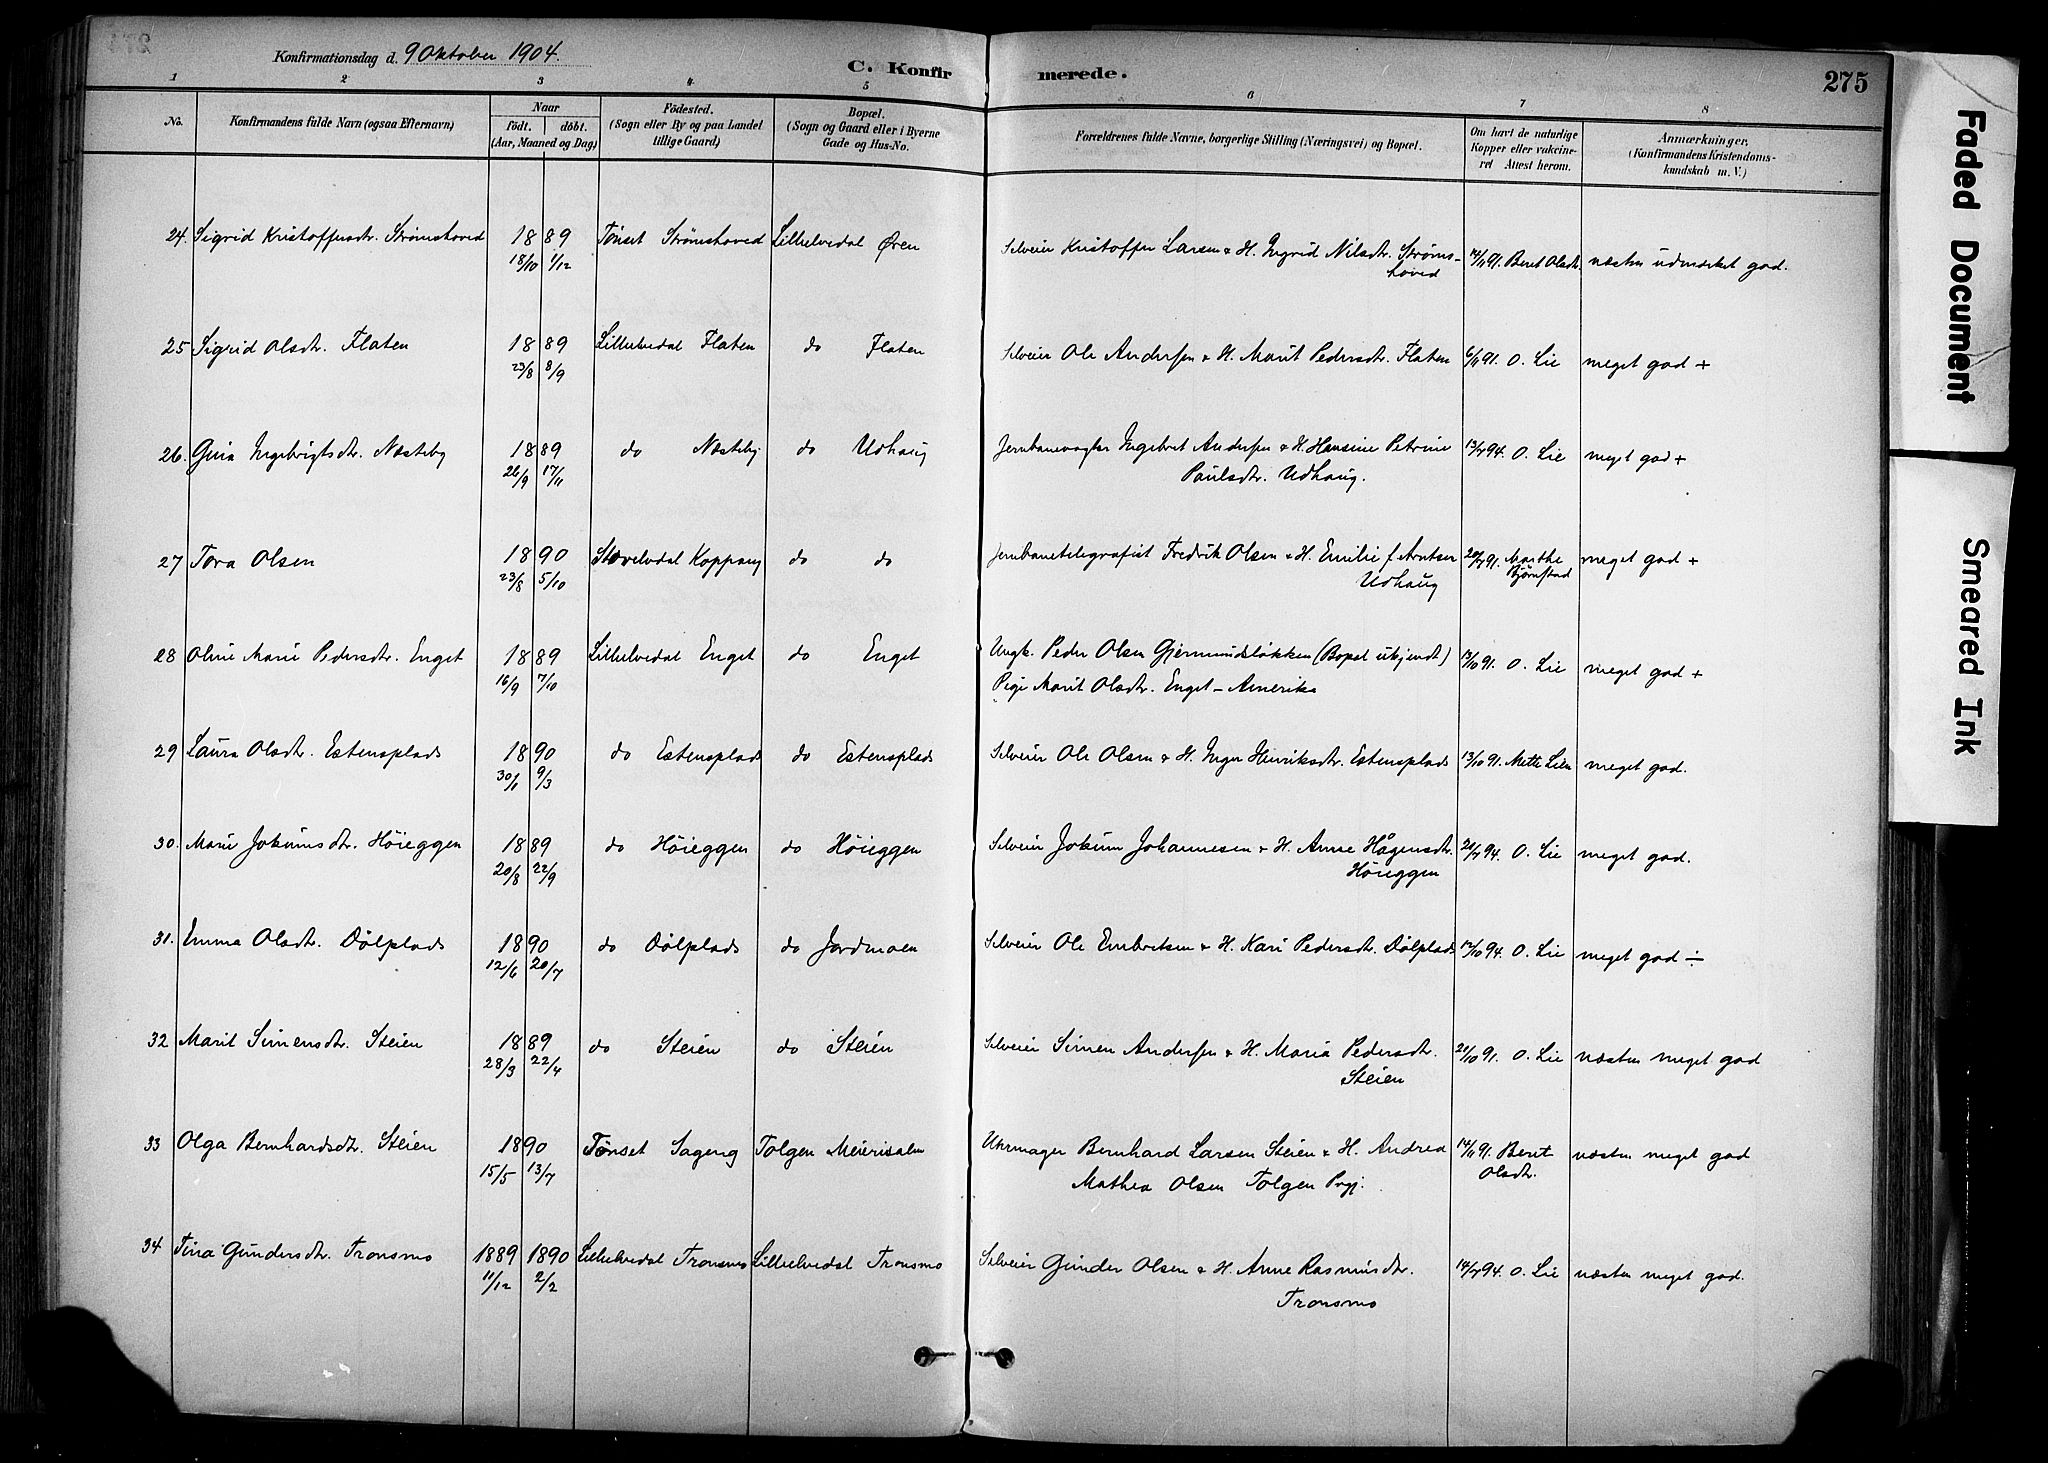 Konfirmationsdag d. 9 Oktober 1904.
C. Konfir
merede.
275
1 2 3 4 5 6 7 8
No.
Konfirmandens fulde Navn (ogsaa Efternavn)
Naar
födt. döbt.
(Aar, Maaned og Dag)
Födested.
(Sogn eller By og paa Landet
tillige Gaard)
Bopæl.
(Sogn og Gaard eller i Byerne
Gade og Hus-No.
Forældrenes fulde Navne, borgerlige Stilling (Næringsvei) og Bopæl.
Om havt de naturlige
Kopper eller vakcine-
ret Attest herom.
Anmærkninger.
(Konfirmandens Kristendoms-
kundskab m. V.)
24. Sigrid Kristoffersdtr. Strømshoved 1889 Tönset Strømshoved Lilleelvedal Øren Selveier Kristoffer Larsen & H. Ingrid Nilsdtr. Strøms- 14/11 91. Beret Olsdtr. næsten udmærket god.
18/10 1/12 hoved
25 Sigrid Olsdtr. Flaten 1889 Lilleelvedal Flaten do Flaten Selveier Ole Andersen & H. Marit Pedersdtr. Flaten 6/11 91. O. Lie meget god +
23/8 8/9
26. Gina Ingebrigtsdtr. Næsteby 1889 do Næsteby do Udhaug Jernbanevogter Ingebret Andersen & H. Hansine Petrine 13/7 94. O. Lie meget god +
26/9 17/11 Paulsdtr. Udhaug.
27 Tora Olsen 1890 Storelvdal Koppang do do Jernbanetelegrafist Fredrik Olsen & H. Emilie f. Arntsen 20/7 91. Marthe meget god +
23/8 5/10 Udhaug Bjørnstad
28 Oline Marie Pedersdtr. Enget 1889 Lilleelvedal Enget do Enget Ungk. Peder Olsen Gjermundsløkken (Bopæl ukjendt) 13/10 91. O. Lie meget god +
16/9 7/10 Pige Marit Olsdtr. Enget - Amerika
29 Laura Olsdtr. Estensplads 1890 do Estensplads do Estensplads Selveier Ole Olsen & H. Inger Henriksdtr. Estensplads 13/10 91. Mette Lien meget god.
30/1 9/3
30. Marie Jokumsdtr. Höieggen 1889 do Höieggen do Höieggen Selveier Jokum Johannesen & H. Anne Hågensdtr. 21/7 94. O. Lie meget god.
20/8 22/9 Höieggen
31. Emma Olsdtr. Dölplads 1890 do Dölplads do Jordmoen Selveier Ole Embretsen & H. Kari Pedersdtr. Dölplads 12/10 94. O. Lie meget god ÷
12/6 20/7
32 Marit Simensdtr. Steien 1889 do Steien do Steien Selveier Simen Andersen & H. Maria Pedersdtr. 21/10 91. O. Lie næsten meget god
28/3 22/4 Steien
33 Olga Bernhardsdtr. Steien 1890 Tönset Sageng Tolgen Meierisalen Uhrmager Bernhard Larsen Steien & H. Andrea 14/11 91. Berit næsten meget god
15/5 13/7 Mathea Olsen Tolgen Prgj. Olsdtr.
34 Tina Gundersdtr. Tronsmo 1889 1890 Lilleelvedal Tronsmo Lilleelvedal Tronsmo Selveier Gunder Olsen & H. Anne Rasmusdtr. 14/7 94. O. Lie næsten meget god.
11/12 2/2 Tronsmo
Faded Document
Smeared Ink